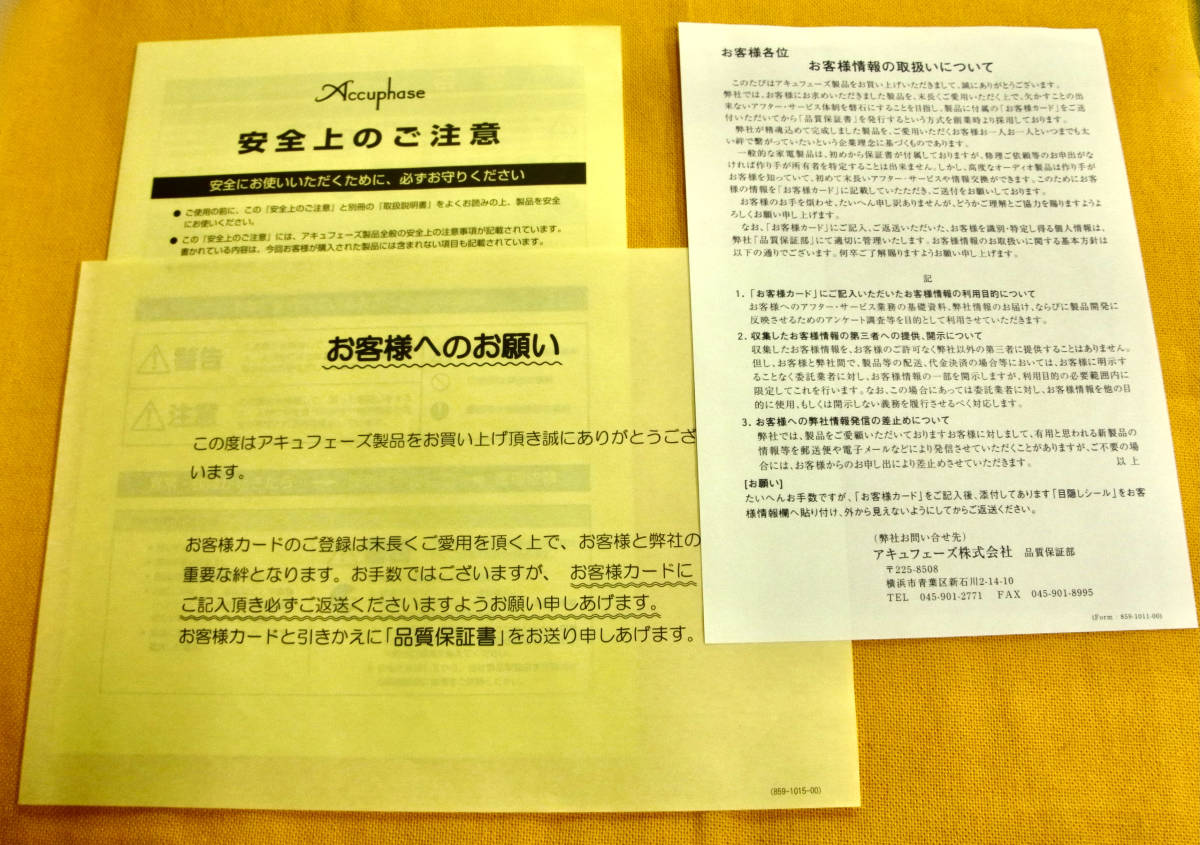 Accuphase
安全上のご注意
安全にお使いいただくために、必ずお守りください
● ご使用の前に、この「安全上のご注意」と別冊の「取扱説明書」をよくお読みの上、製品を安全
にお使いください。
● この「安全上のご注意」には、アキュフェーズ製品全般の安全上の注意事項が記載されています。
書かれている内容は、今回お客様が購入された製品には含まれない項目も記載されています。
お客様へのお願い
この度はアキュフェーズ製品をお買い上げ頂き誠にありがとうござ
います。
お客様カードのご登録は末長くご愛用を頂く上で、お客様と弊社の
重要な絆となります。お手数ではございますが、 お客様カードに
ご記入頂き必ずご返送くださいますようお願い申しあげます。
お客様カードと引きかえに「品質保証書」をお送り申しあげます。
(859-1015-00)
お客様各位
お客様情報の取扱いについて
このたびはアキュフェーズ製品をお買い上げいただきまして、誠にありがとうございます。
弊社では、お客様にお求めいただきました製品を、末長くご愛用いただく上で、欠かすことの出
来ないアフター・サービス体制を磐石にすることを目指し、製品に付属の「お客様カード」をご送
付いただいてから「品質保証書」を発行するという方式を創業時より採用しております。
弊社が精魂込めて完成しました製品を、ご愛用いただくお客様お一人お一人といつまでも太
い絆で繋がっていたいという企業理念に基づくものであります。
一般的な家電製品は、初めから保証書が付属しておりますが、修理ご依頼等のお申出がな
ければ作り手が所有者を特定することは出来ません。しかし、高度なオーディオ製品は作り手が
お客様を知っていて、初めて末長いアフター・サービスや情報交換ができます。このためにお客
様の情報を「お客様カード」に記載していただき、ご送付をお願いしております。
お客様のお手を煩わせ、たいへん申し訳ありませんが、どうかご理解とご協力を賜りますようよ
ろしくお願い申し上げます。
なお、「お客様カード」にご記入、ご返送いただいた、お客様を識別・特定し得る個人情報は、
弊社「品質保証部」にて適切に管理いたします。お客様情報のお取扱いに関する基本方針は
以下の通りでございます。何卒ご了解賜りますようお願い申し上げます。
記
1. 「お客様カード」にご記入いただいたお客様情報の利用目的について
お客様へのアフター・サービス業務の基礎資料、弊社情報のお届け、ならびに製品開発に
反映させるためのアンケート調査等を目的として利用させていただきます。
2. 収集したお客様情報の第三者への提供、開示について
収集したお客様情報を、お客様のご許可なく弊社以外の第三者に提供することはありません。
但し、お客様と弊社間で、製品等の配送、代金決済の場合等においては、お客様に明示す
ることなく委託業者に対し、お客様情報の一部を開示しますが、利用目的の必要範囲内に
限定してこれを行います。なお、この場合にあっては委託業者に対し、お客様情報を他の目
的に使用、もしくは開示しない義務を履行させるべく対応します。
3. お客様への弊社情報発信の差止めについて
弊社では、製品をご愛顧いただいておりますお客様に対しまして、有用と思われる新製品の
情報等を郵送便や電子メールなどにより発信させていただくことがありますが、ご不要の場
合には、お客様からのお申し出により差止めさせていただきます。 以上
[お願い]
たいへんお手数ですが、「お客様カード」をご記入後、添付してあります「目隠しシール」をお客
様情報欄へ貼り付け、外から見えないようにしてからご返送ください。
(弊社お問い合せ先)
アキュフェーズ株式会社 品質保証部
〒225-8508
横浜市青葉区新石川2-14-10
TEL 045-901-2771 FAX 045-901-8995
(Form : 859-1011-00)